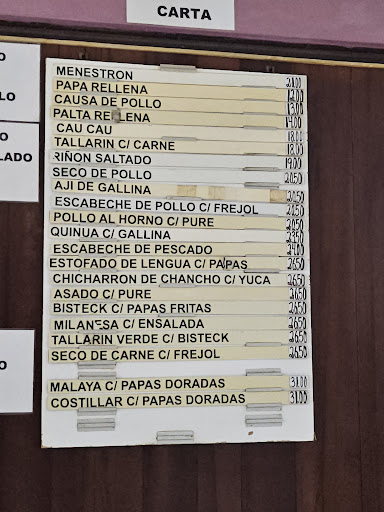 CARTA
O
LO
O
LADO
O
O
MENESTRON 21.00
PAPA RELLENA 12.00
CAUSA DE POLLO 13.00
PALTA RELLENA 14.00
CAU CAU 18.00
TALLARIN C/ CARNE 18.00
RIÑON SALTADO 19.00
SECO DE POLLO 20.50
AJI DE GALLINA 20.50
ESCABECHE DE POLLO C/ FREJOL
POLLO AL HORNO C/ PURE
QUINUA C/ GALLINA 23.50
ESCABECHE DE PESCADO 24.00
ESTOFADO DE LENGUA C/ PAPAS 26.50
CHICHARRON DE CHANCHO C/ YUCA 26.50
ASADO C/ PURE 26.50
BISTECK C/ PAPAS FRITAS 26.50
MILANESA C/ ENSALADA 26.50
TALLARIN VERDE C/ BISTECK 26.50
SECO DE CARNE C/ FREJOL 26.50
MALAYA C/ PAPAS DORADAS 31.00
COSTILLAR C/ PAPAS DORADAS 31.00